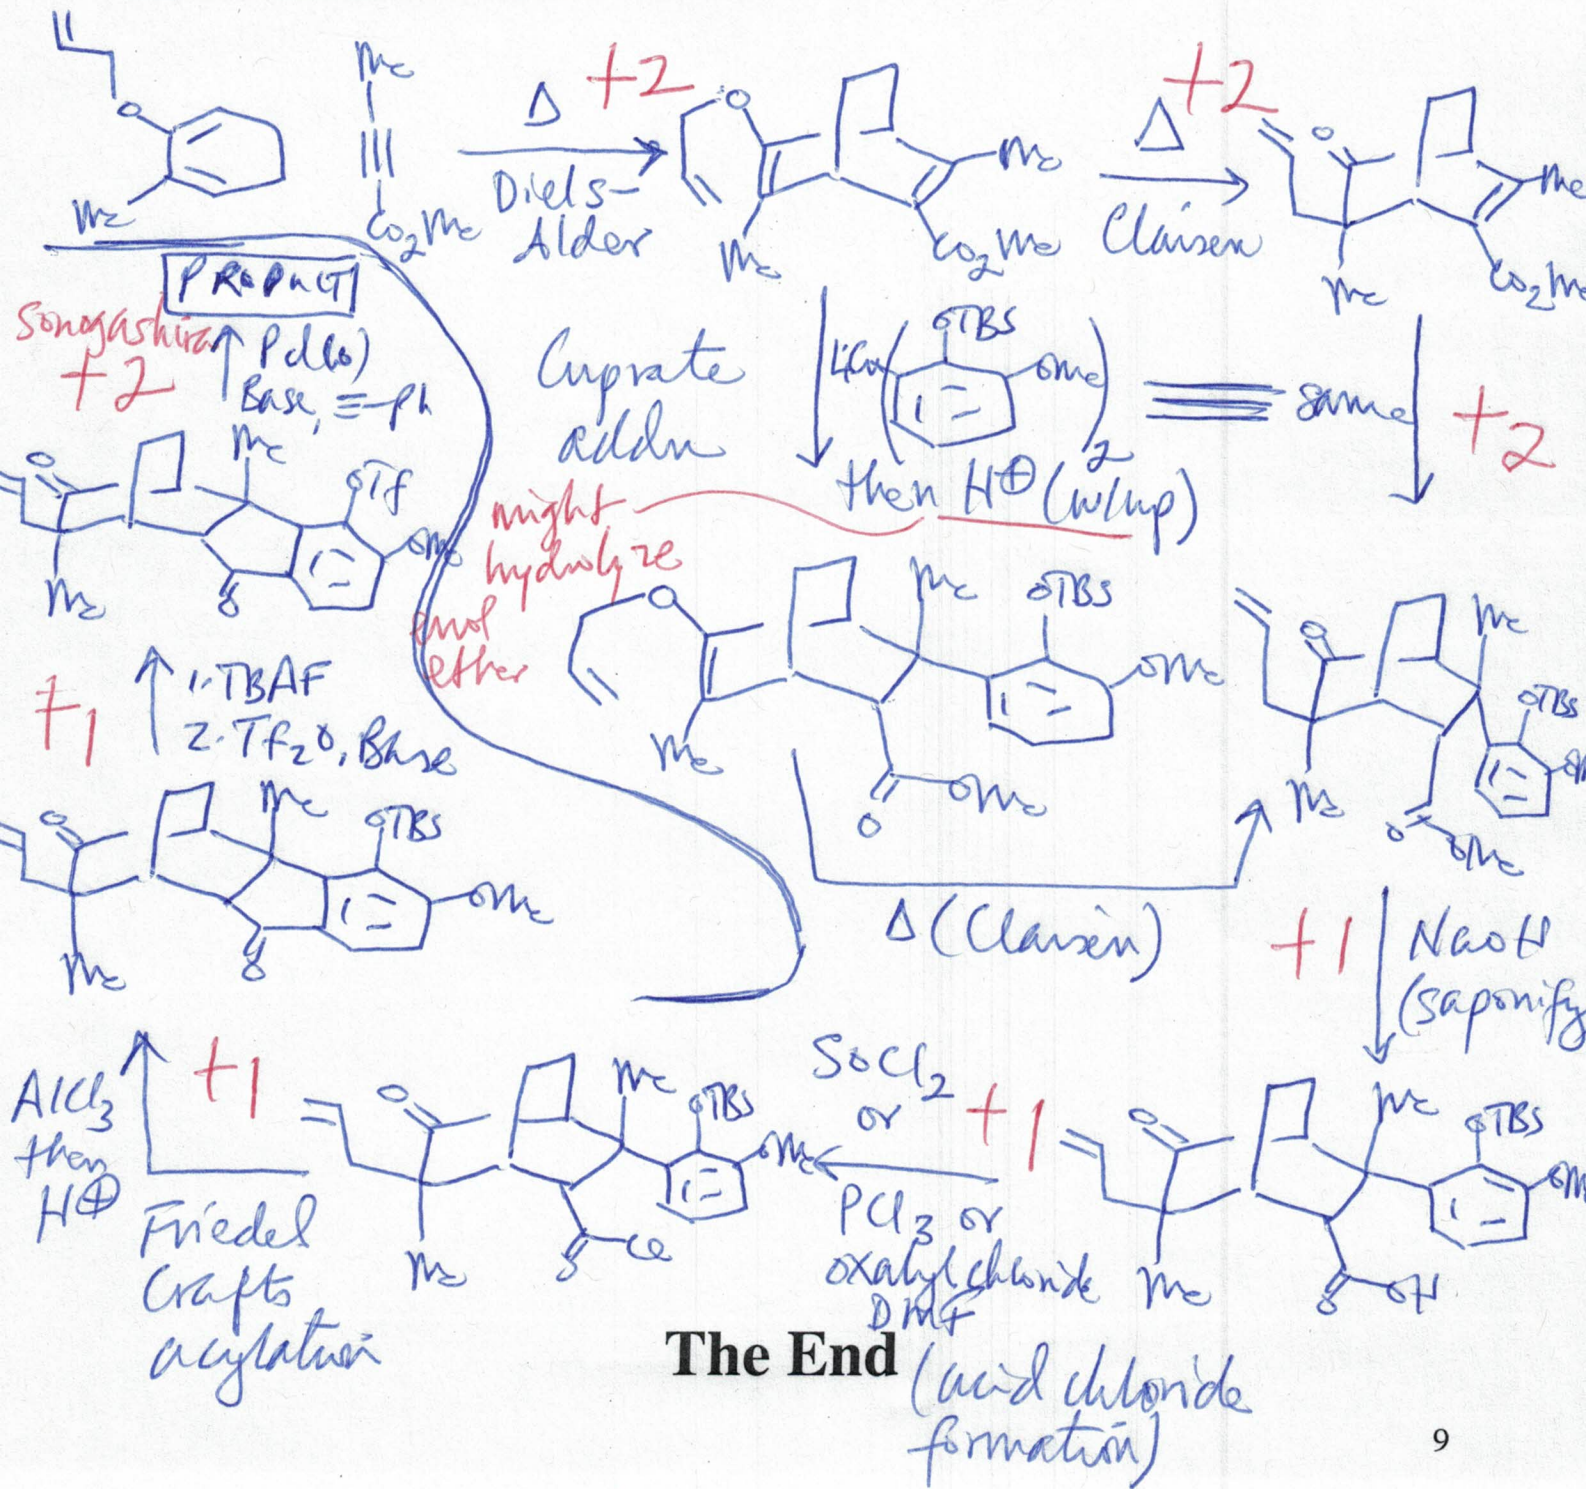 Me
O
Me
CO2Me
Δ
+2
Diels-
Alder
O
Me
Me
CO2Me
Δ
+2
Claisen
O
Me
Me
CO2Me
PRODUCT
Sonogashira
+2
Pd(0)
Base, ≡-Ph
Cuprate
addn
LiCu
OTBS
OMe
2
then H⊕ (w/up)
same
+2
might
hydrolyze
enol
ether
O
Me
OTf
OMe
Me
O
O
Me
OTBS
OMe
Me
O
OMe
O
Me
OTBS
OM
Me
O
OMe
+1
1. TBAF
2. Tf2O, Base
O
Me
OTBS
OMe
Me
O
Δ (Claisen)
+1
NaOH
(saponify
AlCl3
then
H⊕
+1
Friedel
Crafts
acylation
O
Me
OTBS
OMe
Me
O
Cl
SOCl2
or
+1
PCl3 or
oxalyl chloride
DMF
(acid chloride
formation)
O
Me
OTBS
OM
Me
O
OH
The End
9